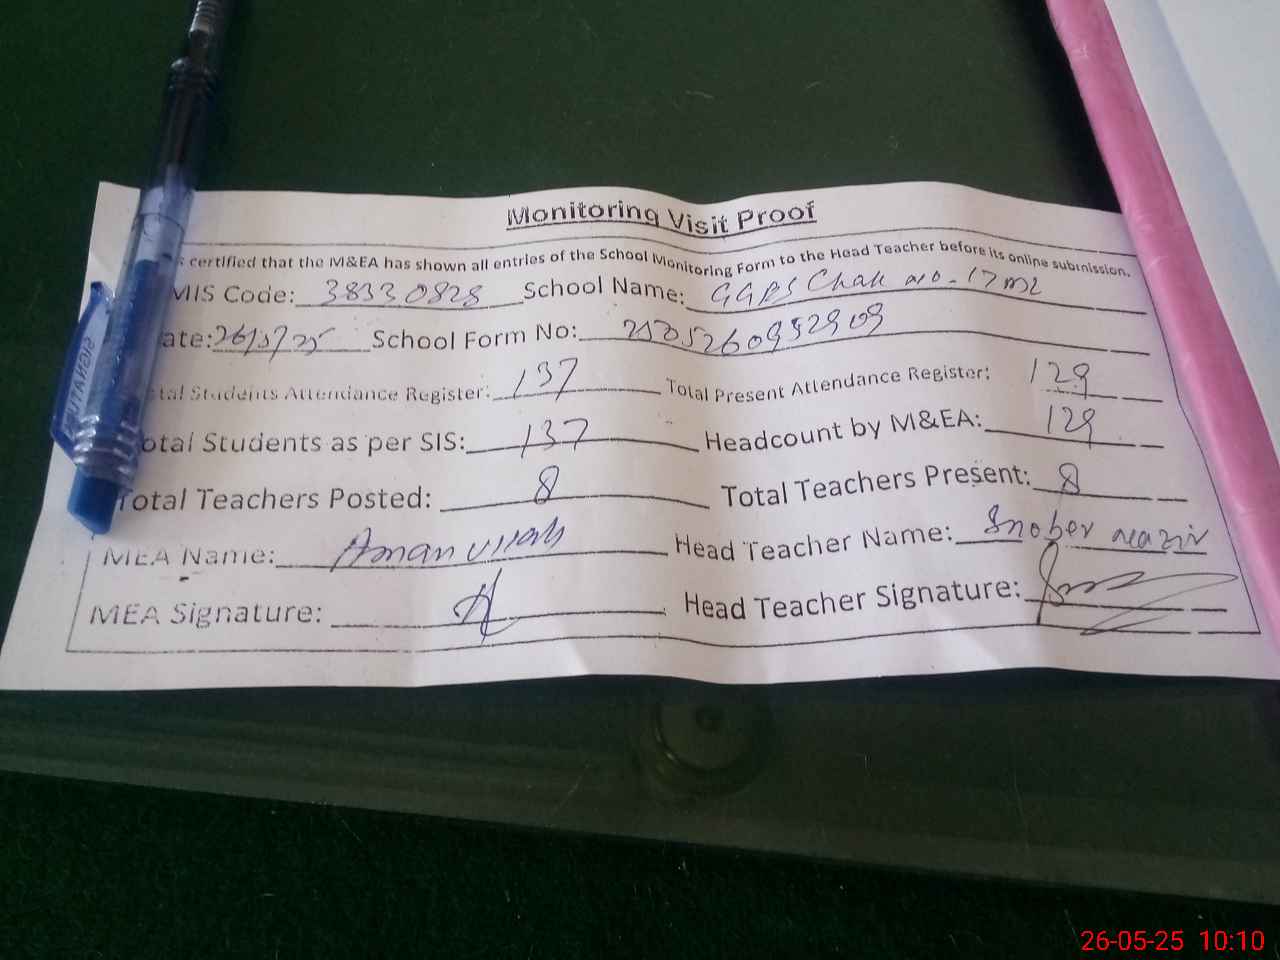 Monitoring Visit Proof
certified that the M&EA has shown all entries of the School Monitoring Form to the Head Teacher before its online submission.
MIS Code: 38330828 School Name: GGPS Chak no. 17 m2
ate: 26/5/25 School Form No:
tal Students Attendance Register: 137 Total Present Attendance Register: 129
otal Students as per SIS: 137 Headcount by M&EA: 129
Total Teachers Posted: 8 Total Teachers Present: 8
MEA Name: Aman ullah Head Teacher Name: Snober nazir
MEA Signature: Head Teacher Signature:
SIGNATU
26-05-25 10:10